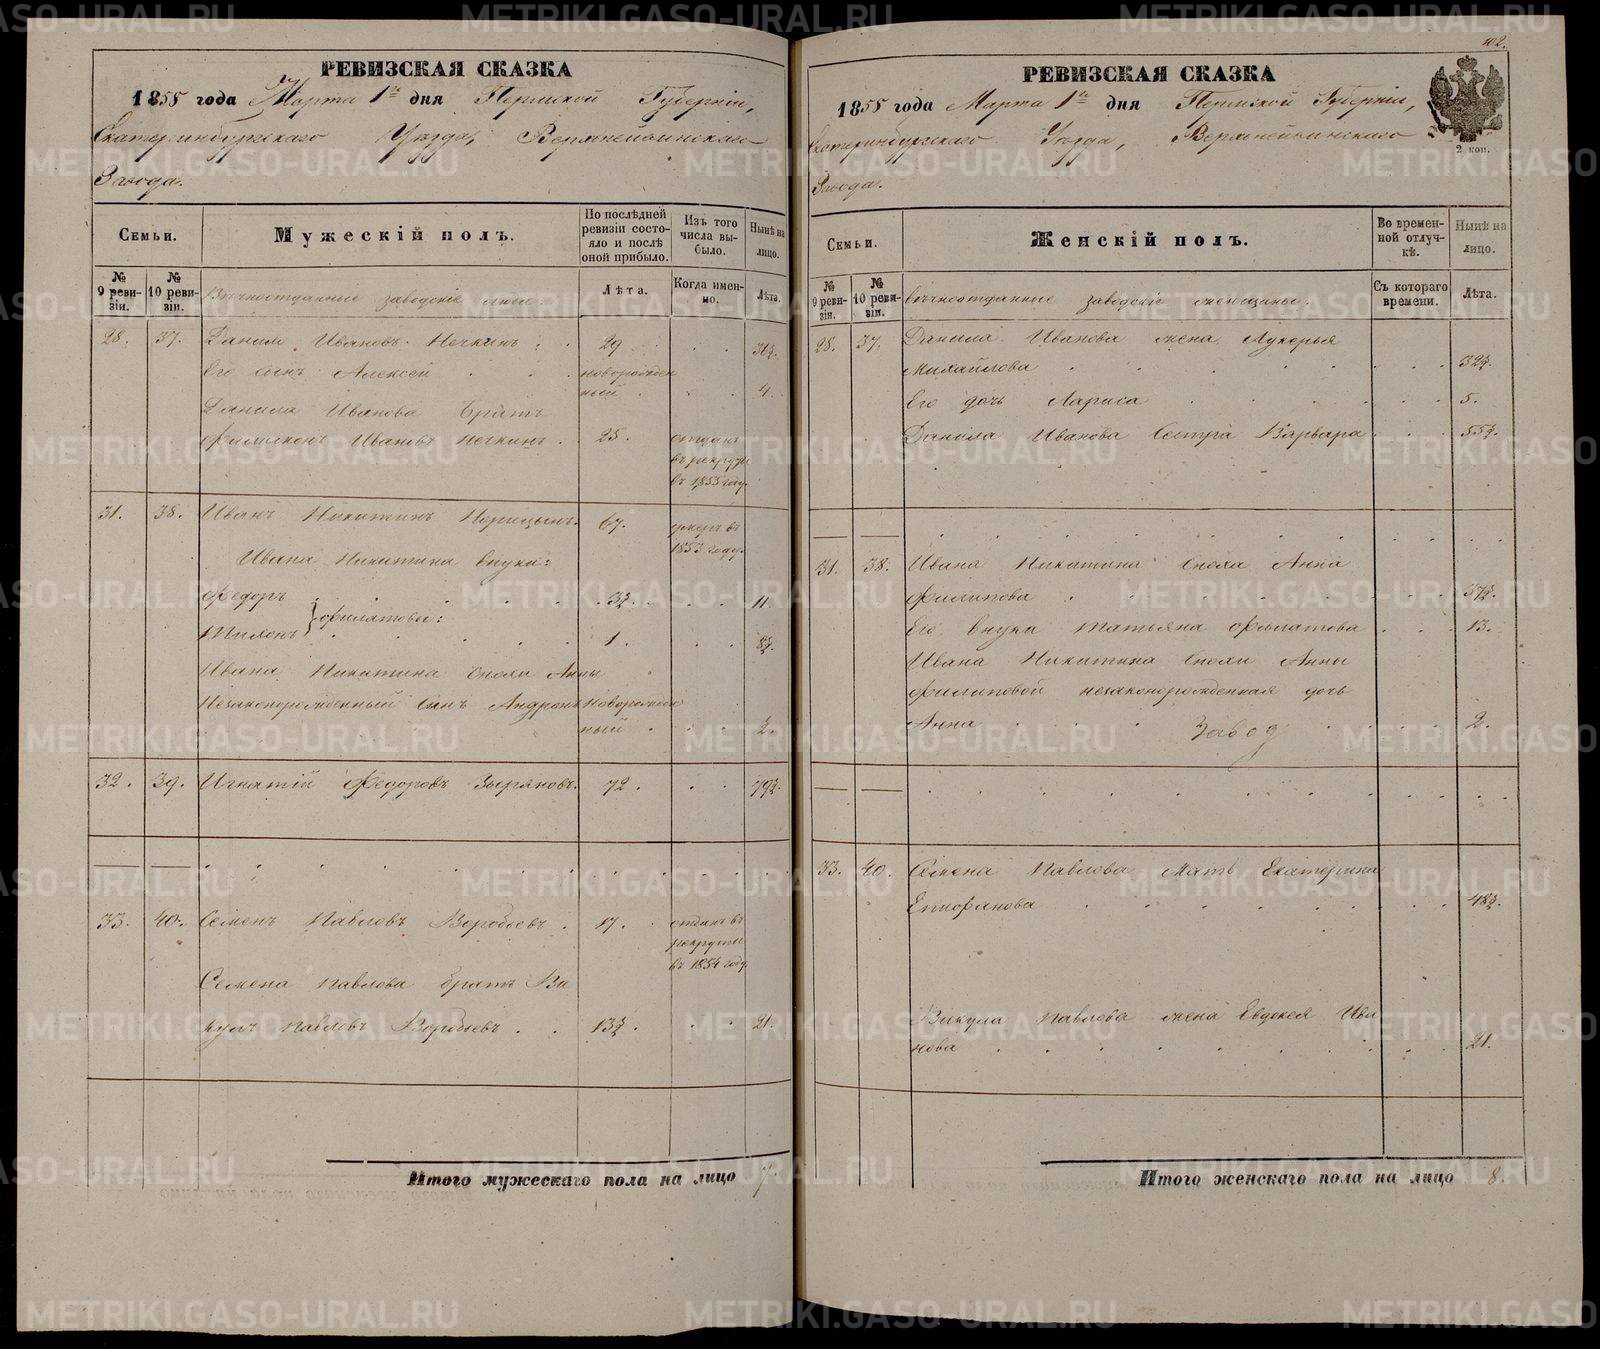 РЕВИЗСКАЯ СКАЗКА
1858 года Марта 1го дня Пермской Губерніи,
Екатеринбургскаго Уѣзда, Верхнейвинскаго
Завода.
Семьи.
Мужескій полъ.
По послѣдней ревизіи состояло и послѣ оной прибыло.
Изъ того числа выбыло.
Нынѣ на лицо.
№ 9 ревизіи.
№ 10 ревизіи.
Вѣчноотданные заводскіе люди.
Лѣта.
Когда именно.
Лѣта.
28. 37. Данило Ивановъ Нечкинъ 29
Его сынъ Алексей новорожден
ный 4.
Данила Иванова братъ
Филимонъ Ивановъ Нечкинъ. 25. отданъ
въ рекруты
въ 1853 году.
31. 38. Иванъ Никитинъ Норицынъ. 67. умеръ въ
1853 году.
Ивана Никитина внуки:
Федоръ 3½ 11
Филатовы:
Тихонъ 1. 8½.
Ивана Никитина снохи Анны
Незаконорожденный сынъ Андронъ новорожден
ный
32. 39. Игнатій Федоровъ Зыряновъ. 72. 79½.
33. 40. Семенъ Павловъ Воробьевъ. 17. отданъ въ
рекруты
въ 1854 году.
Семена Павлова братъ Ви
кулъ Павловъ Воробьевъ 13½ 21.
Итого мужескаго пола на лицо 7
102.
РЕВИЗСКАЯ СКАЗКА
1858 года Марта 1го дня Пермской Губерніи,
Екатеринбургскаго Уѣзда, Верхнейвинскаго
Завода.
2 коп.
Семьи.
Женскій полъ.
Во временной отлучкѣ.
Нынѣ на лицо.
№ 9 ревизіи.
№ 10 ревизіи.
вѣчноотданные заводскіе женщины.
Съ котораго времени.
Лѣта.
28. 37. Данила Иванова жена Лукерья
Михайлова 32½.
Его дочь Лариса 5.
Данила Иванова сестра Варвара 55½.
31. 38. Ивана Никитина сноха Анна
Филипова 57½.
Его внука Татьяна Филатова 13.
Ивана Никитина снохи Анны
Филиповой незаконорожденная дочь
Анна 2.
Завод
33. 40. Семена Павлова мать Екатерина
Епифанова 48½.
Викула Павлова жена Евдокея Ива
нова 21.
Итого женскаго пола на лицо 8.
METRIKI.GASO-URAL.RU